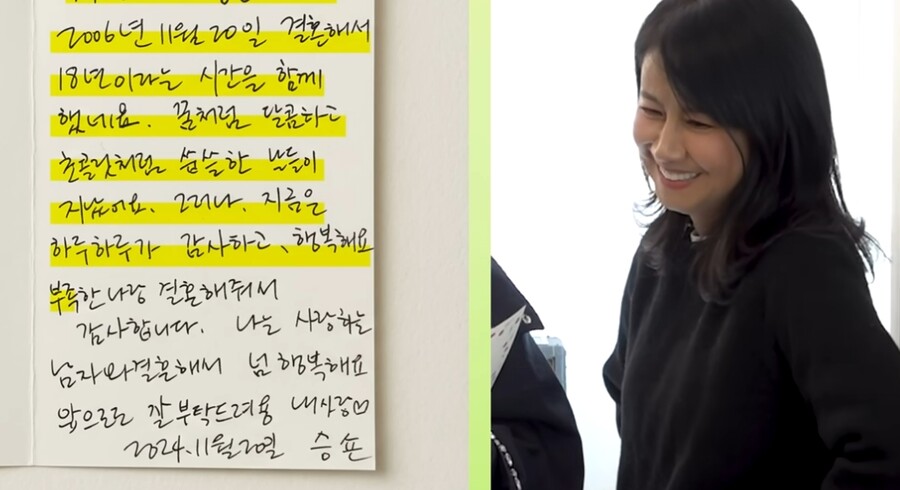 2006년 11월 20일 결혼해서
18년이라는 시간을 함께
했네요. 꿀처럼 달콤하고
초콜릿처럼 씁쓸한 날들이
지났어요. 그러나. 지금은
하루하루가 감사하고, 행복해요
부족한 나랑 결혼해줘서
감사합니다. 나는 사랑하는
남자와 결혼해서 넘 행복해요
앞으로도 잘 부탁드려용 내사랑♡
2024.11월 20일 승